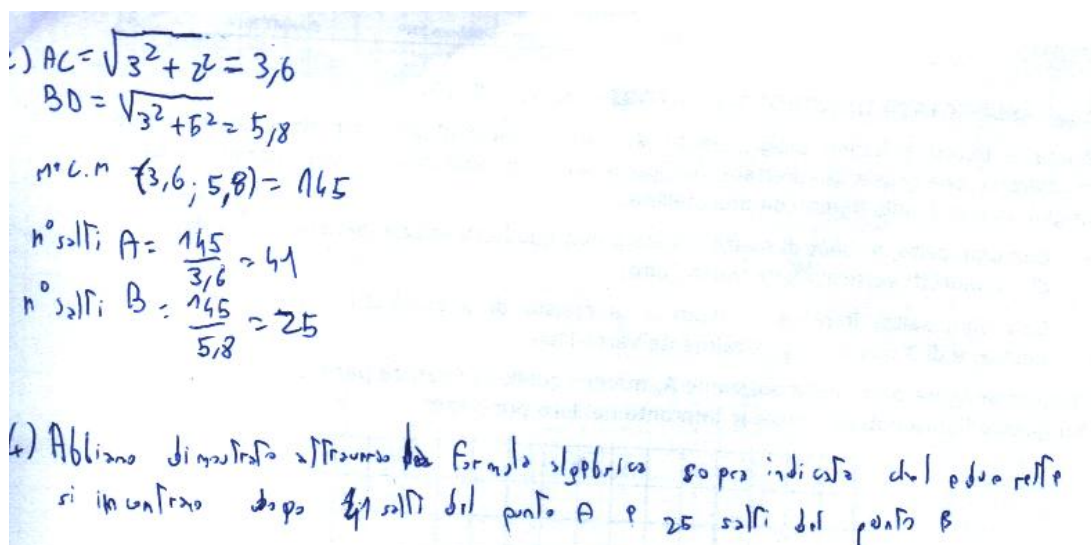 :) AC = √3² + 2² = 3,6
BD = √3² + 5² = 5,8
m.c.m (3,6 ; 5,8) = 145
n° salti A = 145/3,6 = 41
n° salti B = 145/5,8 = 25
4) Abbiamo dimostrato attraverso formula algebrica sopra indicata che due rette
si incontrano dopo 41 salti dal punto A e 25 salti dal punto B